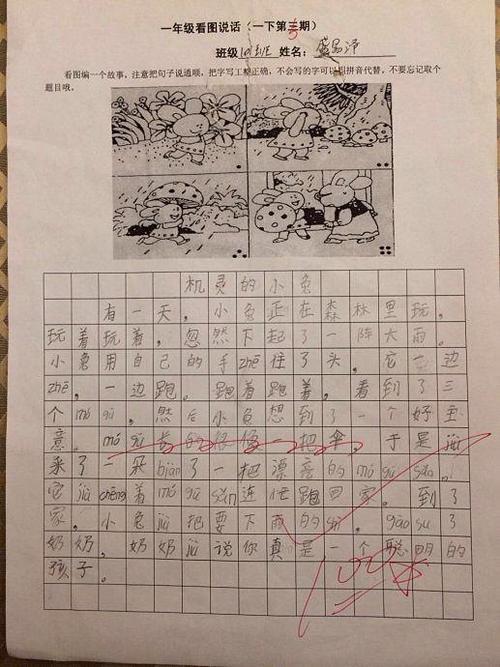 一年级看图说话（一下第3期）
班级 1(4)班 姓名：盛易泽
看图编一个故事，注意把句子说通顺，把字写工整正确，不会写的字可以用拼音代替，不要忘记取个
题目哦。
机灵的小兔
有一天，小兔正在森林里玩，
玩着玩着，忽然下起了一阵大雨。
小兔用自己的手zhē住了头，它一边
zhē，一边跑。跑着跑着，看到了三
个mó gū，然后小兔想到了一个好主
意。mó gū长的很像一把伞，于是jiù
采了一朵biàn了一把漂亮的mó gū sǎn，
它jiù chēng着mó gū sǎn连忙跑回家。到了
家，小兔jiù把要下雨的shì，gào su了
奶奶，奶奶jiù说你真是一个聪明的
孩子。
100